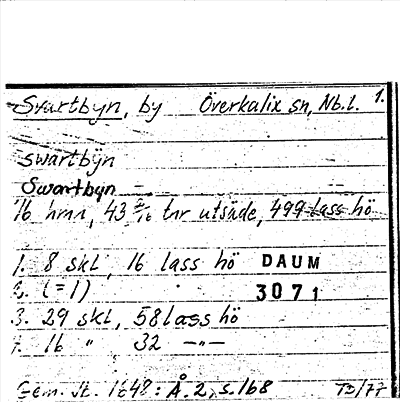 Svartbyn, by Överkalix sn, Nb.l. 1.
swartbÿn
Swartbyn
16 hmn, 43 tnr utsäde, 499 lass hö
1. 8 skl, 16 lass hö DAUM
2. (=1) 3071
3. 29 skl, 58 lass hö
7. 16 " 32 —"—
Gem. Jt. 1648: Å. 2, s. 168 TD/77